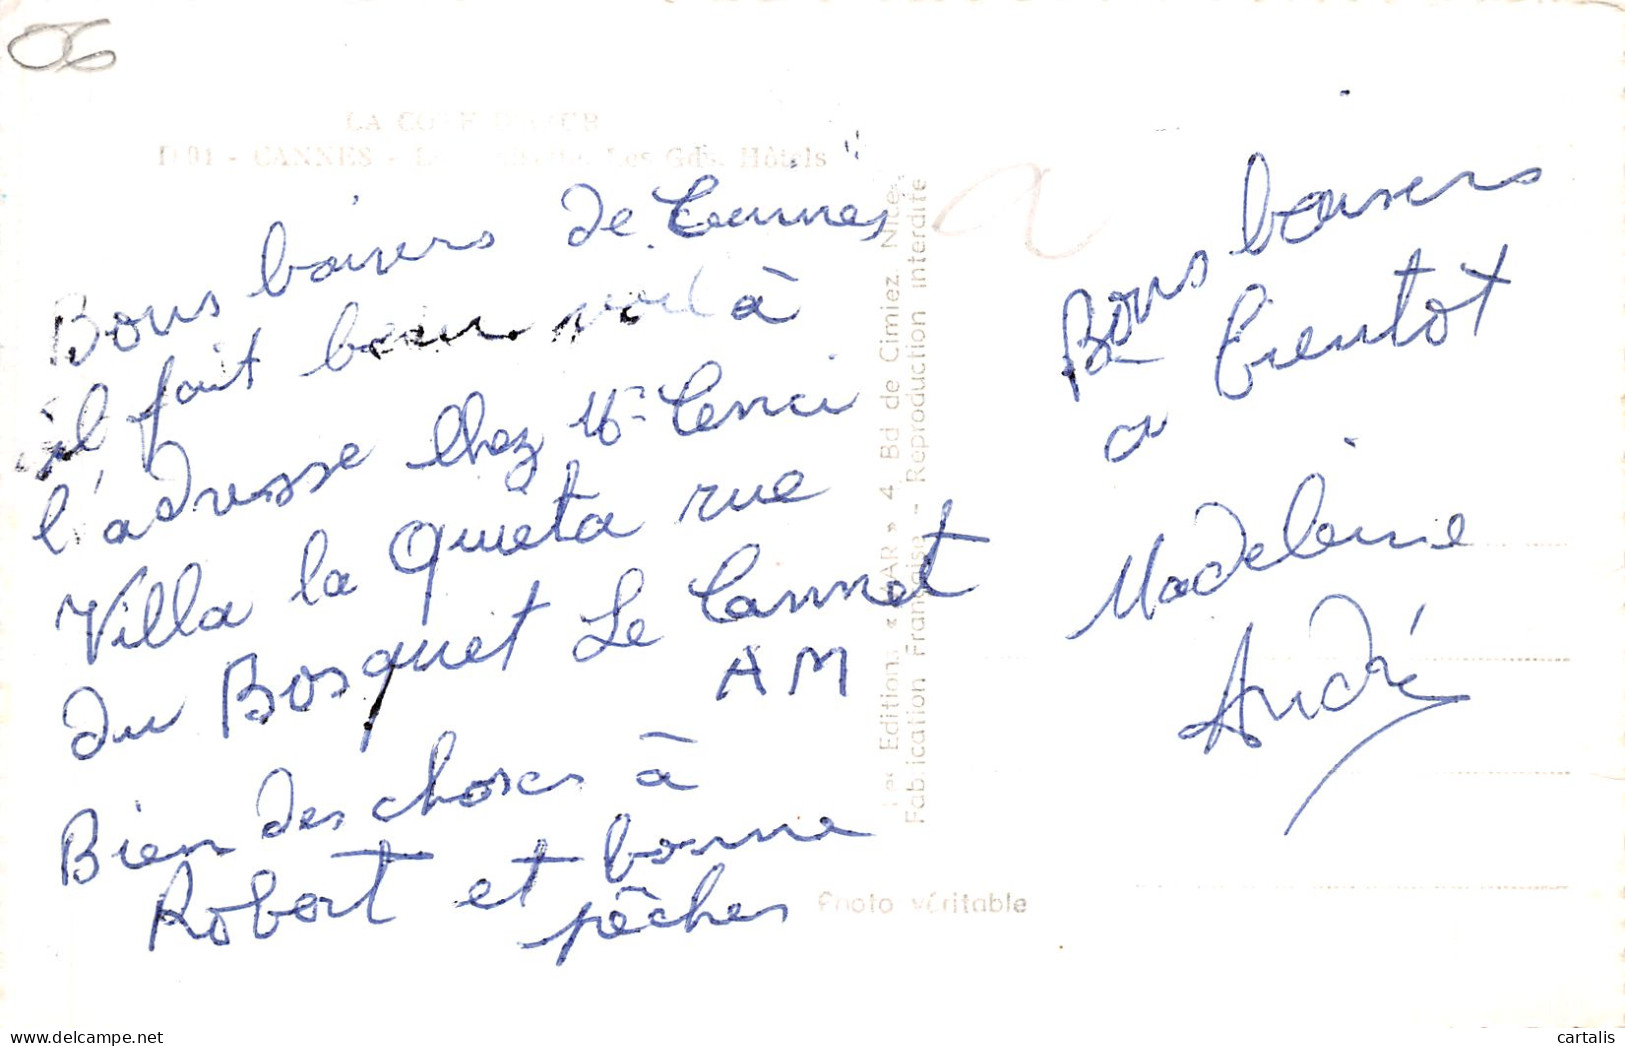 06
LA COTE D'AZUR
D 91 - CANNES - Les Gds. Hôtels
Bons baisers de Cannes
il fait beau voilà
l'adresse chez Mr Cenci
Villa la Quiéta rue
du Bosquet Le Cannet
AM
Bien des choses à
Robert et bonne
pêches
Les Editions « MAR » 4 Bd de Cimiez, Nice
Fabrication Française - Reproduction interdite
Photo véritable
Bons baisers
a bientot
Madeleine
André
cartalis
www.delcampe.net